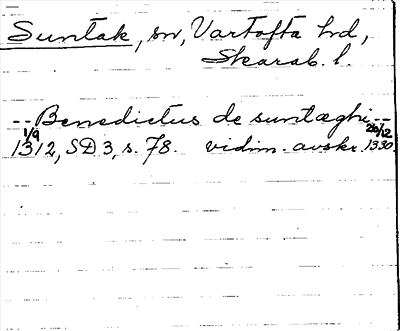 Suntak, sn, Vartofta hd,
Skarab. l.
-- Benedictus de suntæghi --
1/9 20/12
1312, SD 3, s. 78. vidim. avskr. 1330.